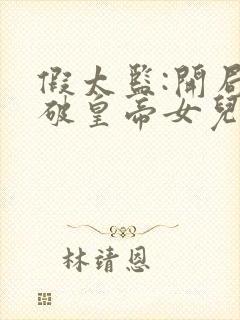 假太監:開局
破皇帝女兒
林靖恩